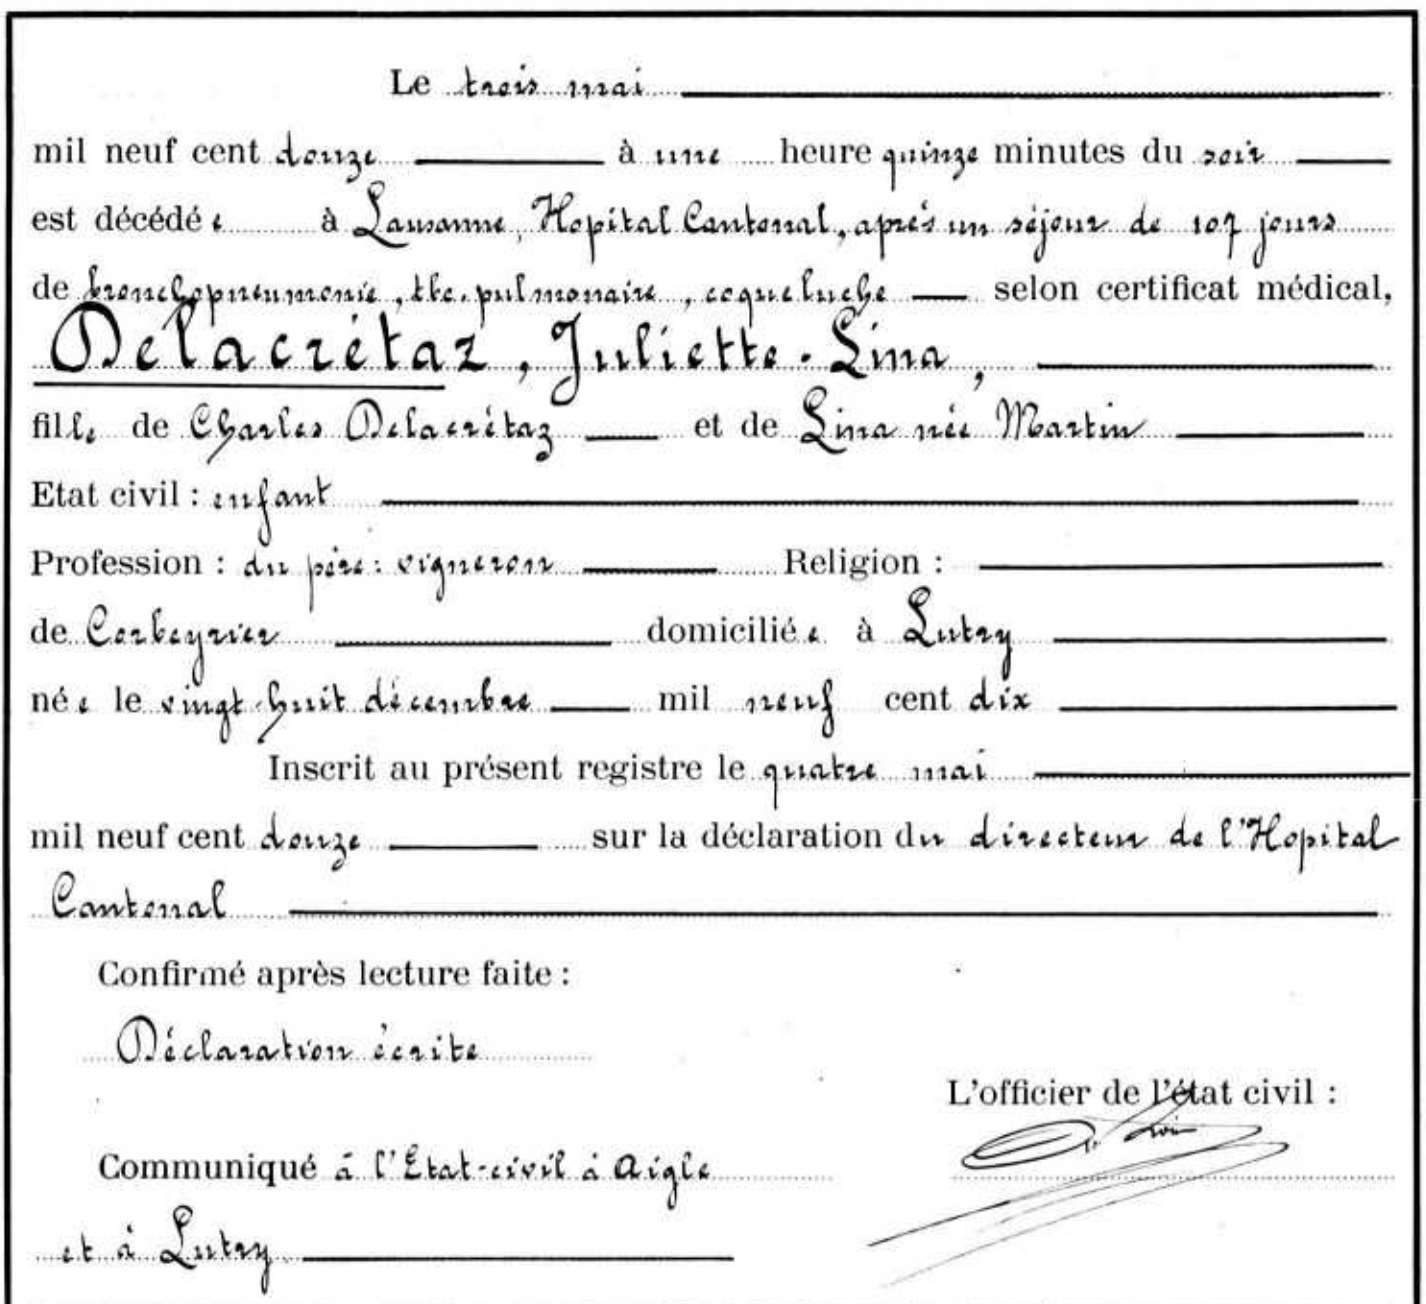 Le trois mai
mil neuf cent douze à une heure quinze minutes du soir
est décédée à Lausanne, Hopital Cantonal, après un séjour de 107 jours
de bronchopneumonie, tbc. pulmonaire, coqueluche selon certificat médical,
Delacrétaz, Juliette-Lina,
fille de Charles Delacrétaz et de Lina née Martin
Etat civil : enfant
Profession : du père : vigneron Religion :
de Corbeyrier domiciliée à Lutry
née le vingt-huit décembre mil neuf cent dix
Inscrit au présent registre le quatre mai
mil neuf cent douze sur la déclaration du directeur de l'Hopital
Cantonal
Confirmé après lecture faite :
Déclaration écrite
L'officier de l'état civil :
Communiqué à l'Etat-civil à Aigle
et à Lutry